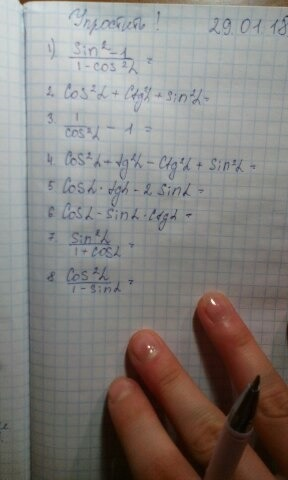 Упростить! 29.01.18
1) sin²-1 / 1-cos²α =
2. cos²α + ctg²α + sin²α =
3. 1 / cos²α - 1 =
4. cos²α + tg²α - ctg²α + sin²α =
5 cosα · tgα - 2 sinα =
6 cosα - sinα · ctgα =
7. sin²α / 1+cosα =
8. cos²α / 1-sinα =